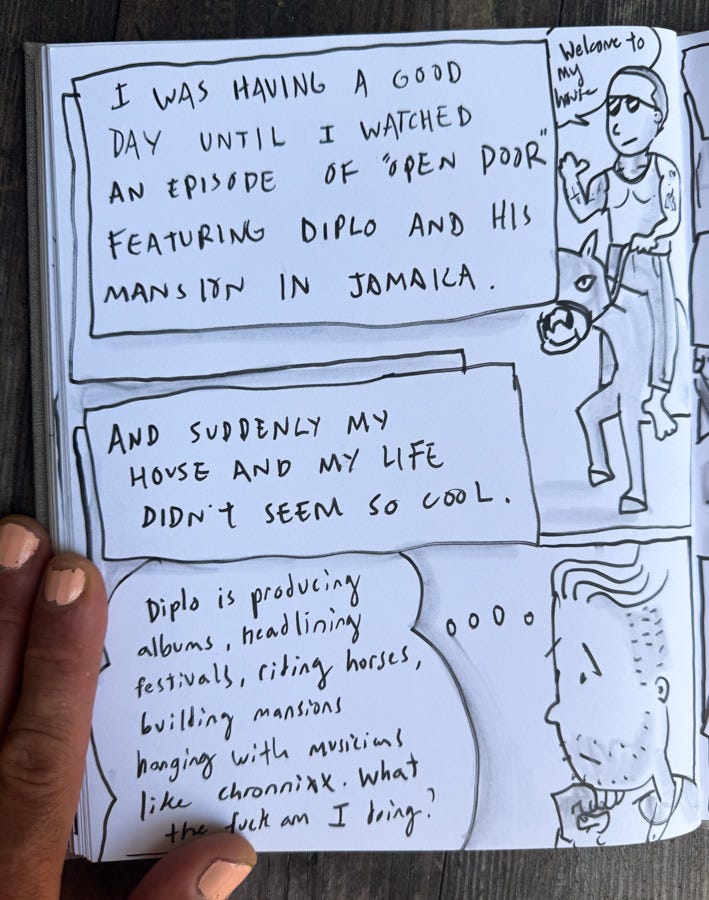 I WAS HAVING A GOOD
DAY UNTIL I WATCHED
AN EPISODE OF "OPEN DOOR"
FEATURING DIPLO AND HIS
MANSION IN JAMAICA.
Welcome to
my
house
AND SUDDENLY MY
HOUSE AND MY LIFE
DIDN'T SEEM SO COOL.
Diplo is producing
albums, headlining
festivals, riding horses,
building mansions
hanging with musicians
like chronnixx. What
the fuck am I doing?